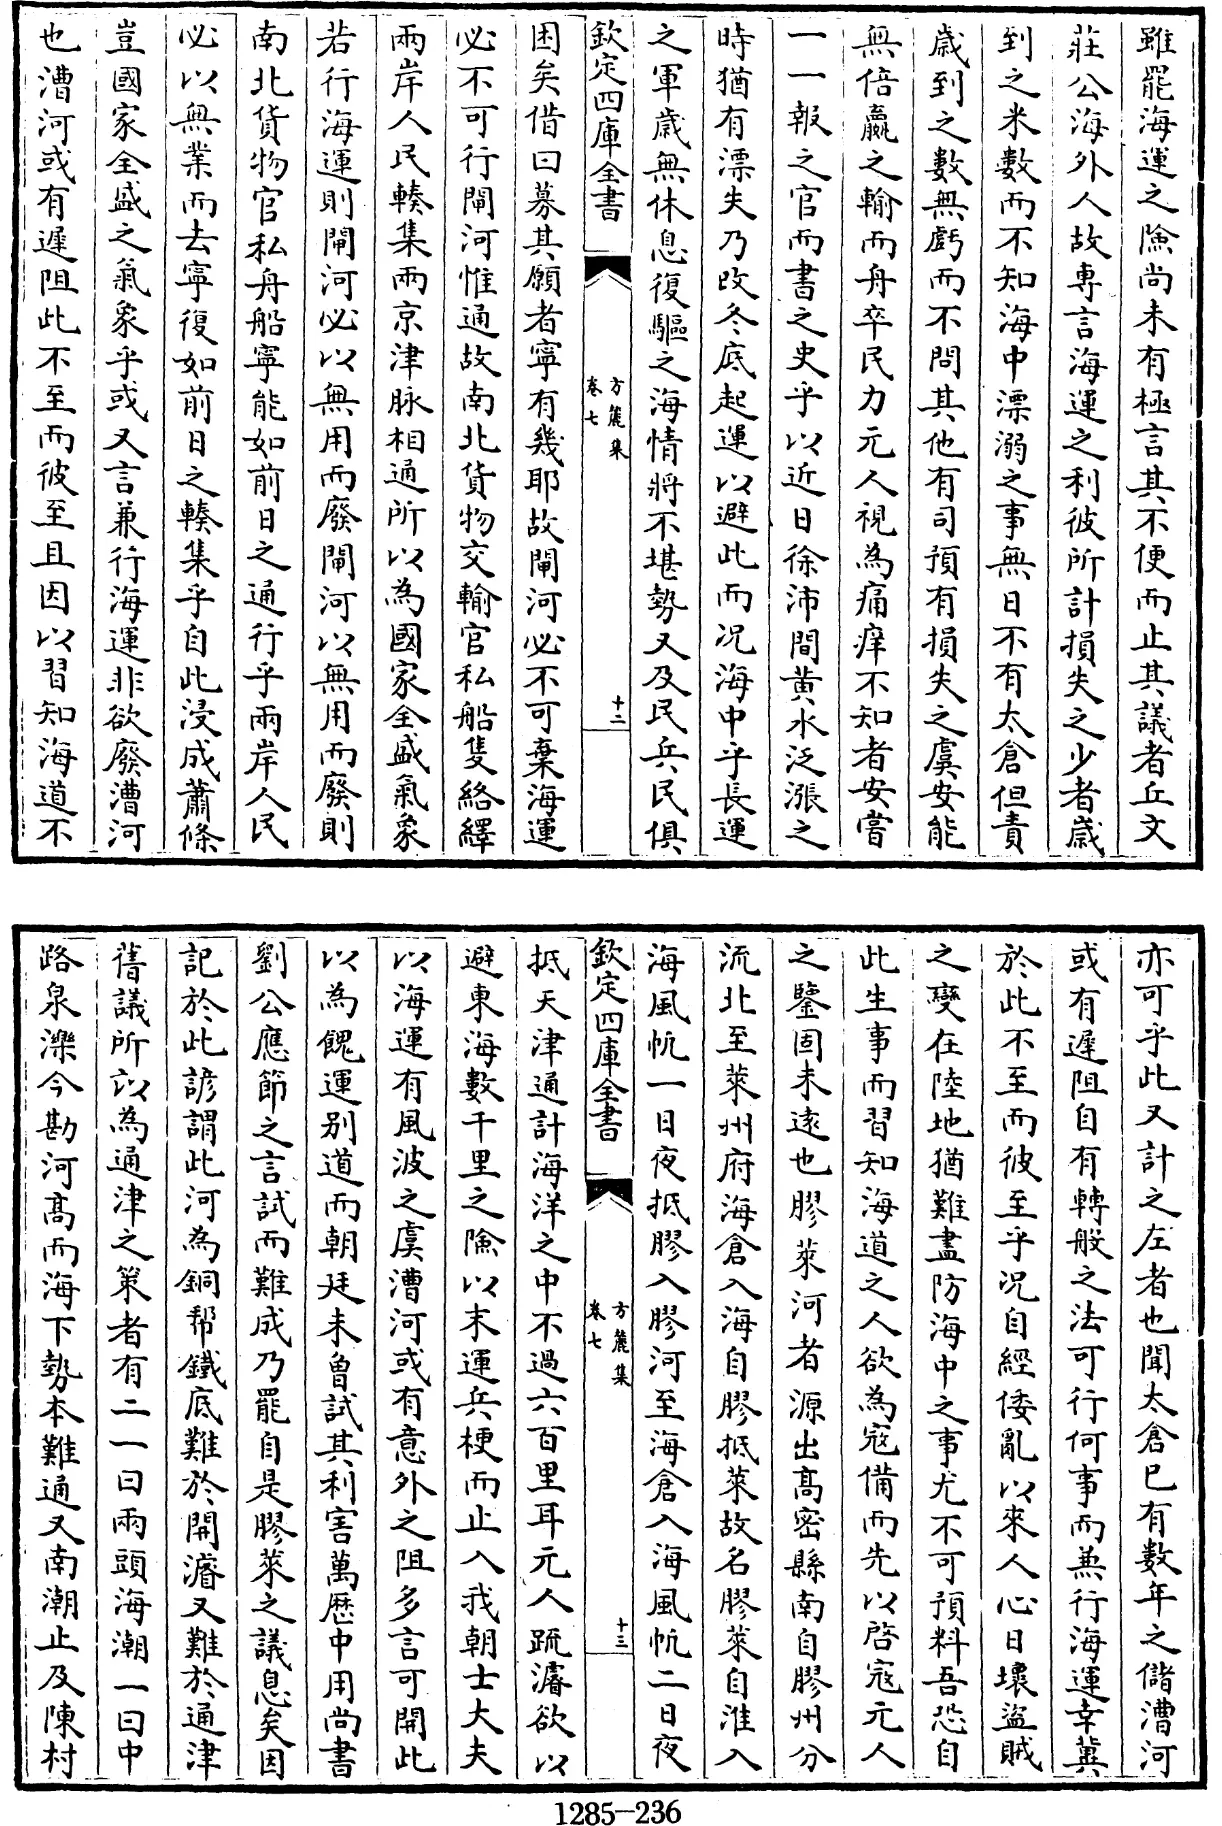 雖罷海運之險尚未有極言其不便而止其議者丘文
莊公海外人故専言海運之利彼所計損失之少者歳
到之米數而不知海中漂溺之事無日不有太倉但責
歳到之數無虧而不問其他有司預有損失之虞安能
無倍贏之輸而舟卒民力元人視為痛痒不知者安嘗
一一報之官而書之史乎以近日徐沛間黄水泛漲之
時猶有漂失乃改冬底起運以避此而况海中乎長運
之軍歳無休息復驅之海情將不堪勢又及民兵民俱
欽定四庫全書
方麓集
卷七
十二
困矣借曰募其願者寧有幾耶故閘河必不可棄海運
必不可行閘河惟通故南北貨物交輸官私船隻絡繹
兩岸人民輳集兩京津脉相通所以為國家全盛氣象
若行海運則閘河必以無用而廢閘河以無用而廢則
南北貨物官私舟船寧能如前日之通行乎兩岸人民
必以無業而去寧復如前日之輳集乎自此浸成蕭條
豈國家全盛之氣象乎或又言兼行海運非欲廢漕河
也漕河或有遲阻此不至而彼至且因以習知海道不
亦可乎此又計之左者也聞太倉已有數年之儲漕河
或有遲阻自有轉般之法可行何事而兼行海運幸冀
於此不至而彼至乎况自經倭亂以來人心日壊盜賊
之變在陸地猶難盡防海中之事尤不可預料吾恐自
此生事而習知海道之人欲為寇備而先以啓寇元人
之鑒固未遠也膠萊河者源出高密縣南自膠州分
流北至萊州府海倉入海自膠抵萊故名膠萊自淮入
海風帆一日夜抵膠入膠河至海倉入海風帆二日夜
欽定四庫全書
方麓集
卷七
十三
抵天津通計海洋之中不過六百里耳元人䟽濬欲以
避東海數千里之險以末運兵梗而止入我朝士大夫
以海運有風波之虞漕河或有意外之阻多言可開此
以為餽運别道而朝廷未曾試其利害萬歴中用尚書
劉公應節之言試而難成乃罷自是膠萊之議息矣因
記於此諺謂此河為銅幫鐵底難於開濬又難於通津
舊議所以為通津之策者有二一曰兩頭海潮一曰中
路泉濼今勘河髙而海下勢本難通又南潮止及陳村
1285-236